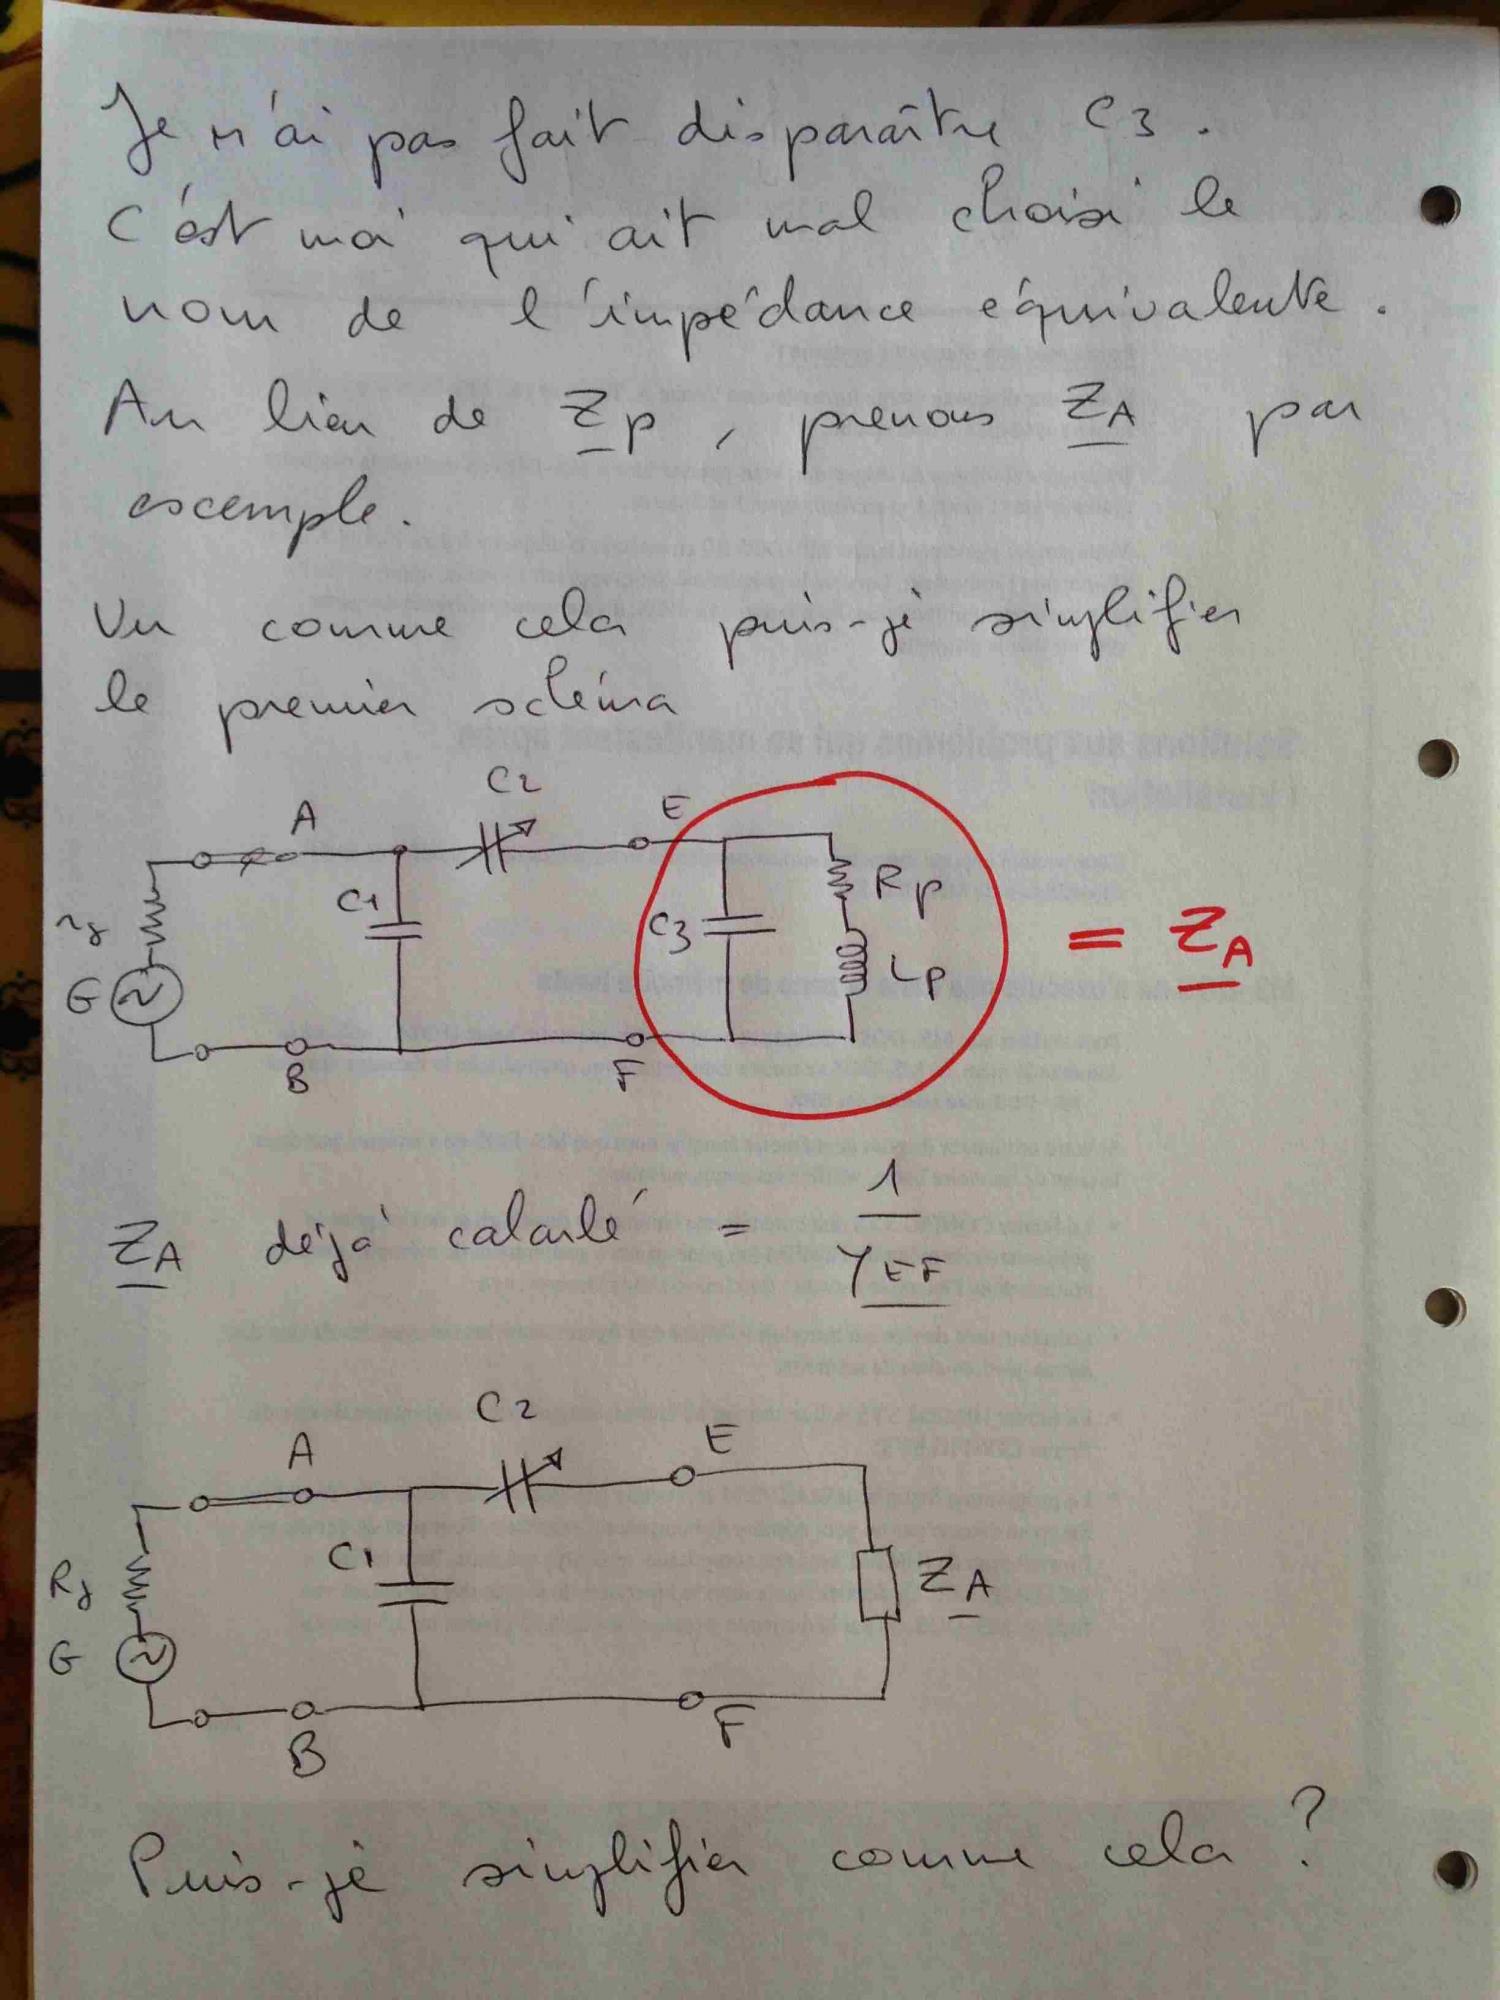 Je n'ai pas fait disparaître C3.
C'est moi qui ait mal choisi le
nom de l'impédance équivalente.
Au lieu de Zp, prenons ZA par
exemple.
Vu comme cela puis-je simplifier
le premier schéma
C2
A
E
C1
C3
Rp
rg
Lp
= ZA
G
B
F
ZA déjà calculé = 1
YEF
C2
A
E
C1
Rg
ZA
G
B
F
Puis-je simplifier comme cela ?